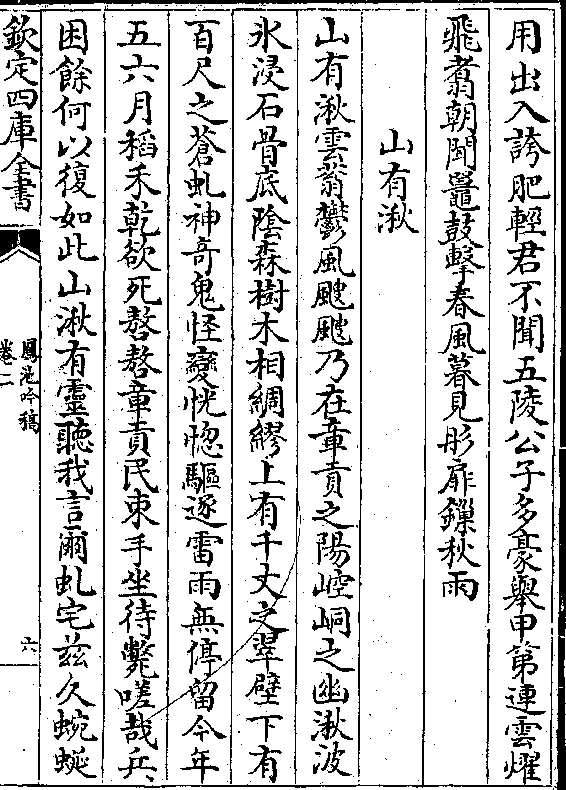 用出入誇肥輕君不聞五陵公子多豪舉甲第連雲燿
飛翥朝聞鼉鼓擊春風暮見彤扉鏁秋雨
山有湫
山有湫雲蓊鬱風颼颼乃在章貢之陽崆峒之幽湫波
氷浸石骨底陰森樹木相綢繆上有千丈之翠壁下有
百尺之蒼虬神奇鬼怪變恍惚驅逐雷雨無停留今年
五六月稻禾乾欲死嗸嗸章貢民束手坐待斃嗟哉兵
困餘何以復如此山湫有靈聽我言爾虬宅兹久蜿蜒
欽定四庫全書
鳳池吟稿
卷二
六